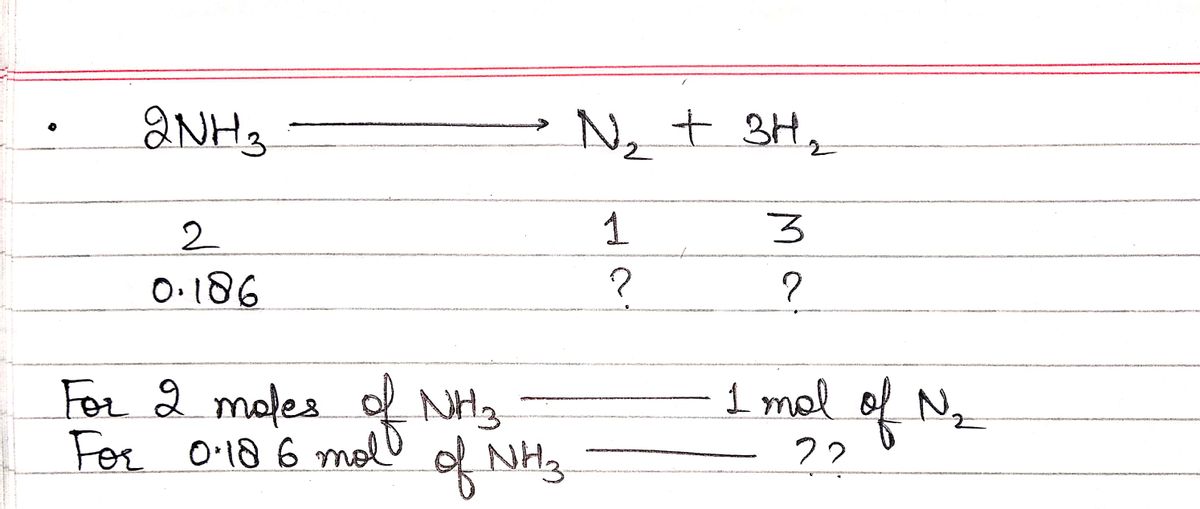 • 2NH₃ ⟶ N₂ + 3H₂
2 1 3
0.186 ? ?
For 2 moles of NH₃ —— 1 mol of N₂
For 0.186 mol of NH₃ —— ??